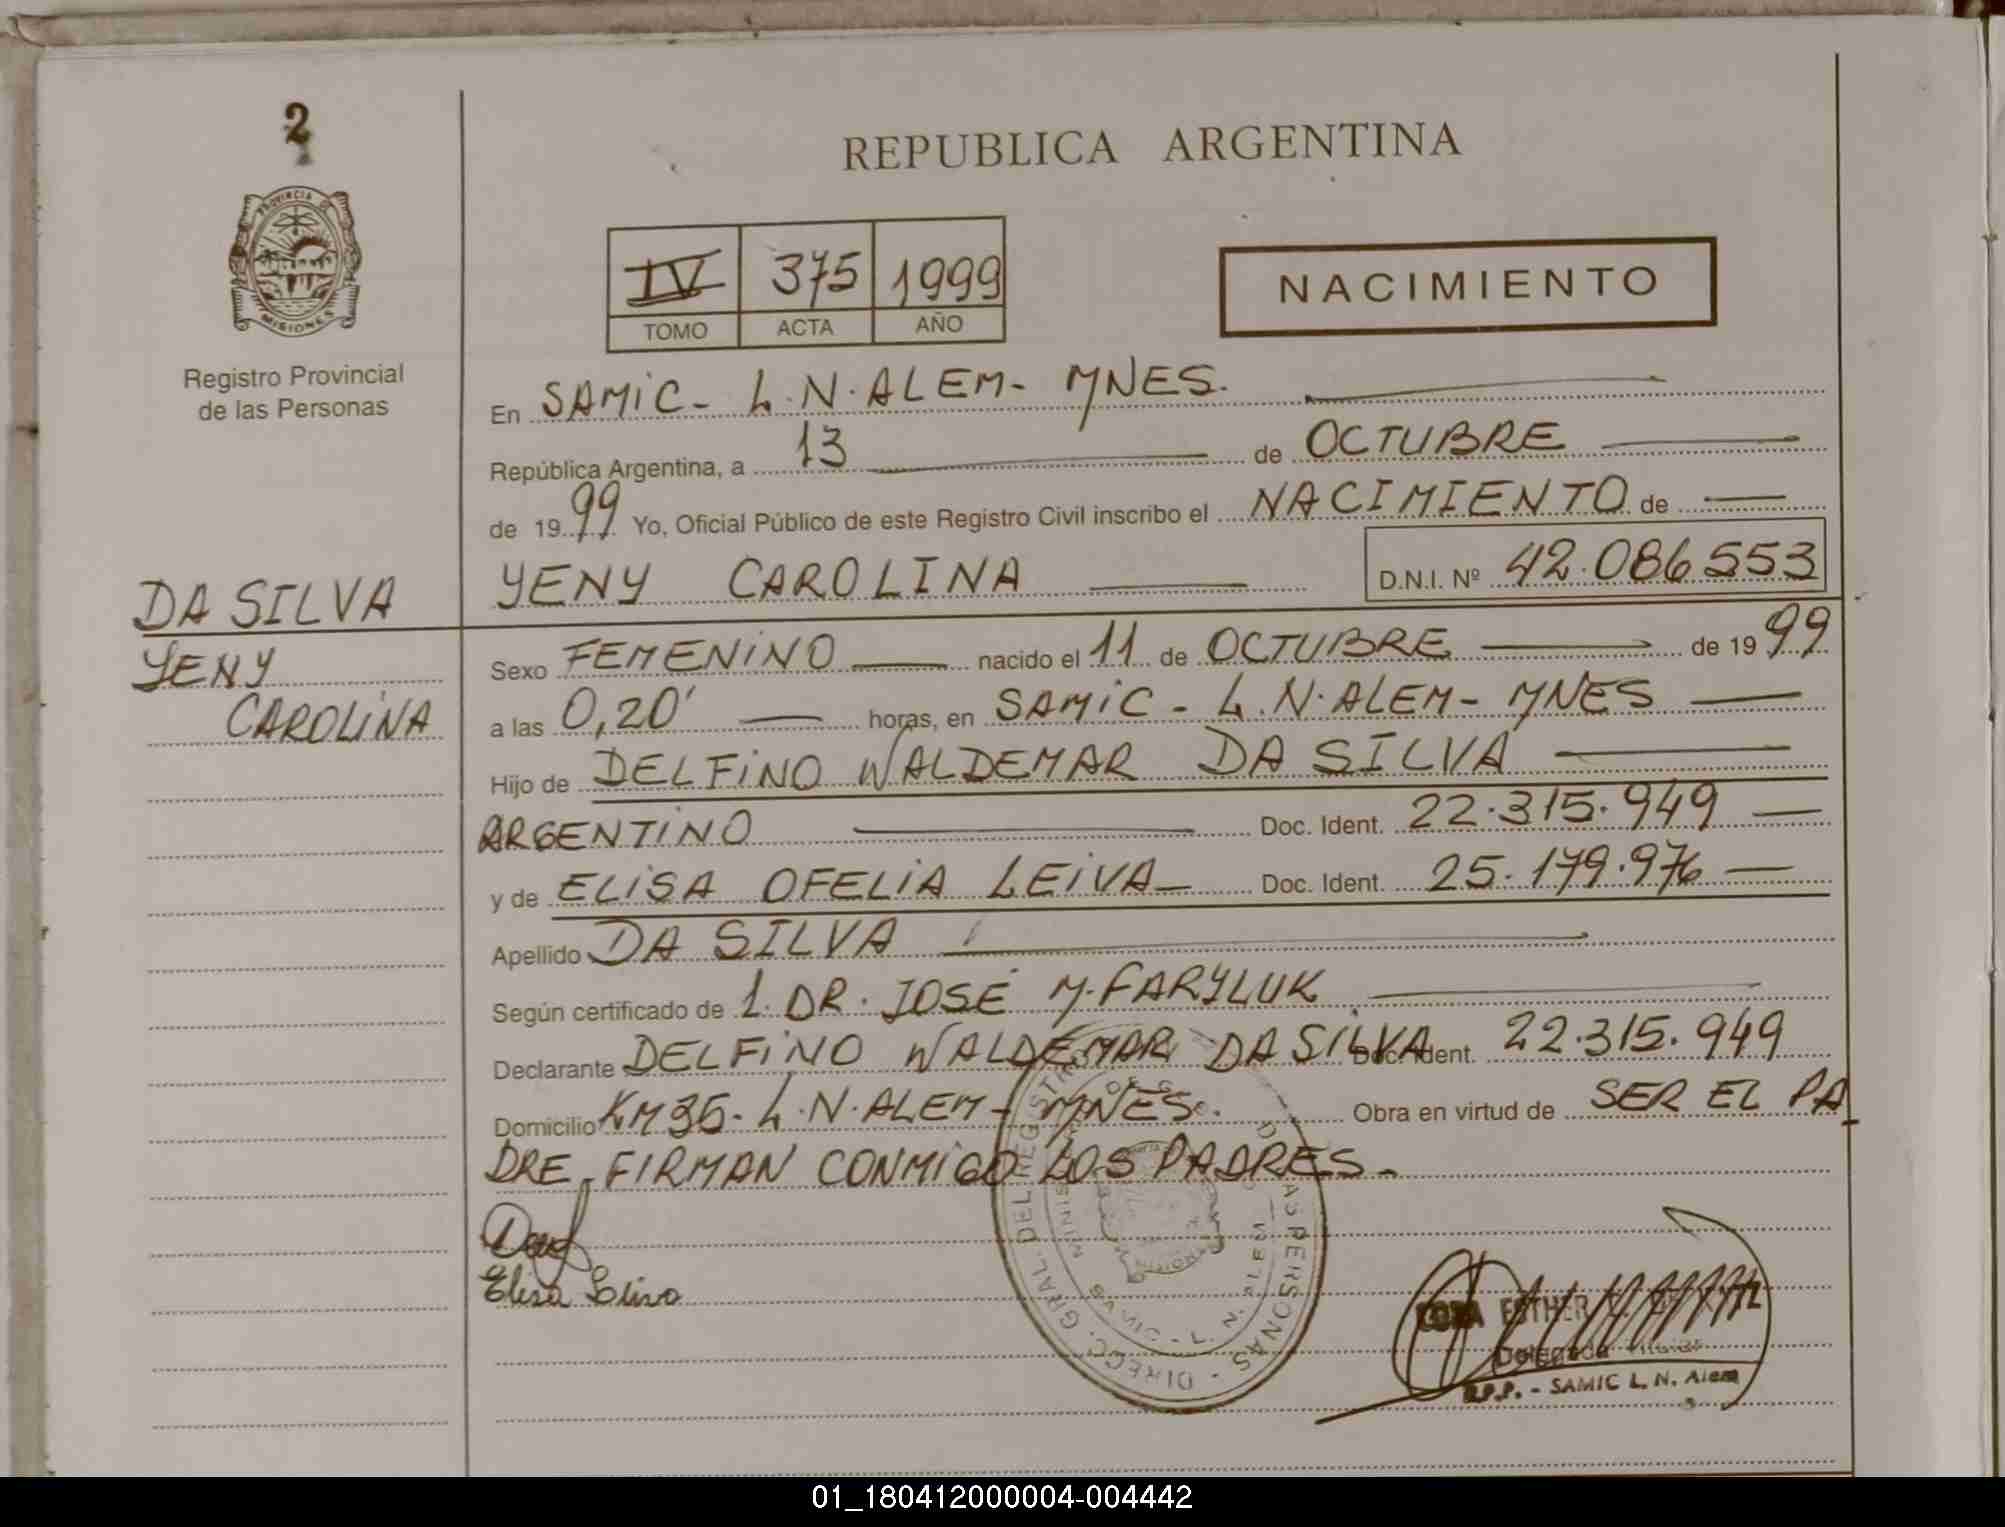 2
PROVINCIA DE
MISIONES
Registro Provincial
de las Personas
REPUBLICA ARGENTINA
IV 375 1999
TOMO ACTA AÑO
NACIMIENTO
En SAMIC - L.N. ALEM - MNES.
República Argentina, a 13 de OCTUBRE
de 1999 Yo, Oficial Público de este Registro Civil inscribo el NACIMIENTO de
DA SILVA
YENY CAROLINA D.N.I. Nº 42.086.553
YENY
CAROLINA
Sexo FEMENINO nacido el 11 de OCTUBRE de 1999
a las 0,20' horas, en SAMIC - L.N. ALEM - MNES
Hijo de DELFINO WALDEMAR DA SILVA
ARGENTINO Doc. Ident. 22.315.949
y de ELISA OFELIA LEIVA Doc. Ident. 25.179.976
Apellido DA SILVA
Según certificado de 1. DR. JOSÉ M. FARYLUK
Declarante DELFINO WALDEMAR DA SILVA Doc. Ident. 22.315.949
Domicilio KM 35 - L.N. ALEM - MNES. Obra en virtud de SER EL PA
DRE. FIRMAN CONMIGO LOS PADRES.-
Elisa Leiva
DIRECC. GRAL. DEL REGISTRO PERSONAS
L. N. ALEM
MISIONES
ESTHER
Delegada Titular
R.P.P. - SAMIC L. N. Alem
01_180412000004-004442